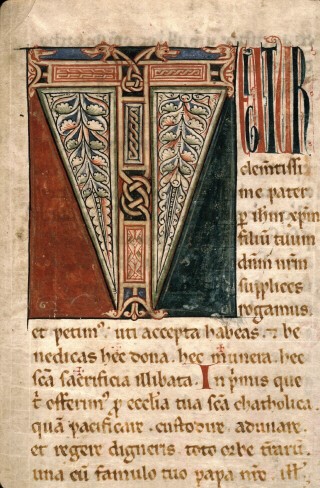 TE IGITUR
clem̄tissi
me pater.
p ih̄m xp̄m
filiū tuum
dn̄m nr̄m
supplices
rogamus.
et petim᷒. uti accepta habeas. ⁊ be
nedicas hęc dona. hęc munera. hęc
sc̄a sacrificia illibata. In p̄mis que
t̄ offerim᷒ p ecclīa tua sc̄a chatholica.
quā pacificare. custodire. adunare.
et regere digneris toto orbe t̄rarū.
una cū famulo tuo papa nr̄o. ill̄.